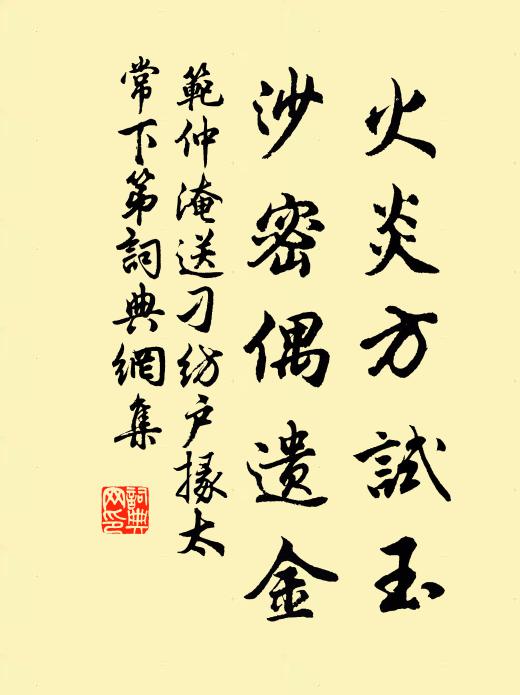 火炎方試玉
沙密偶遺金
範仲淹送刁紡户掾太
常下第詞典網集
詞典網印